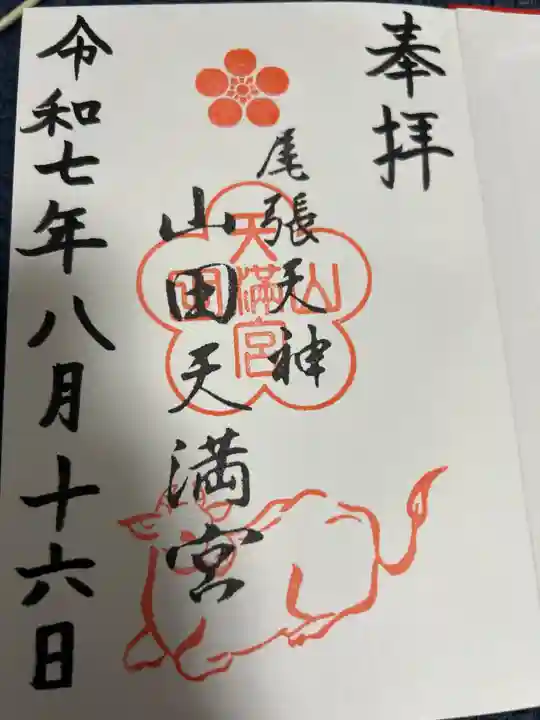 奉拝
尾張天神
山田天満宮
山田
天満宮
令和七年八月十六日